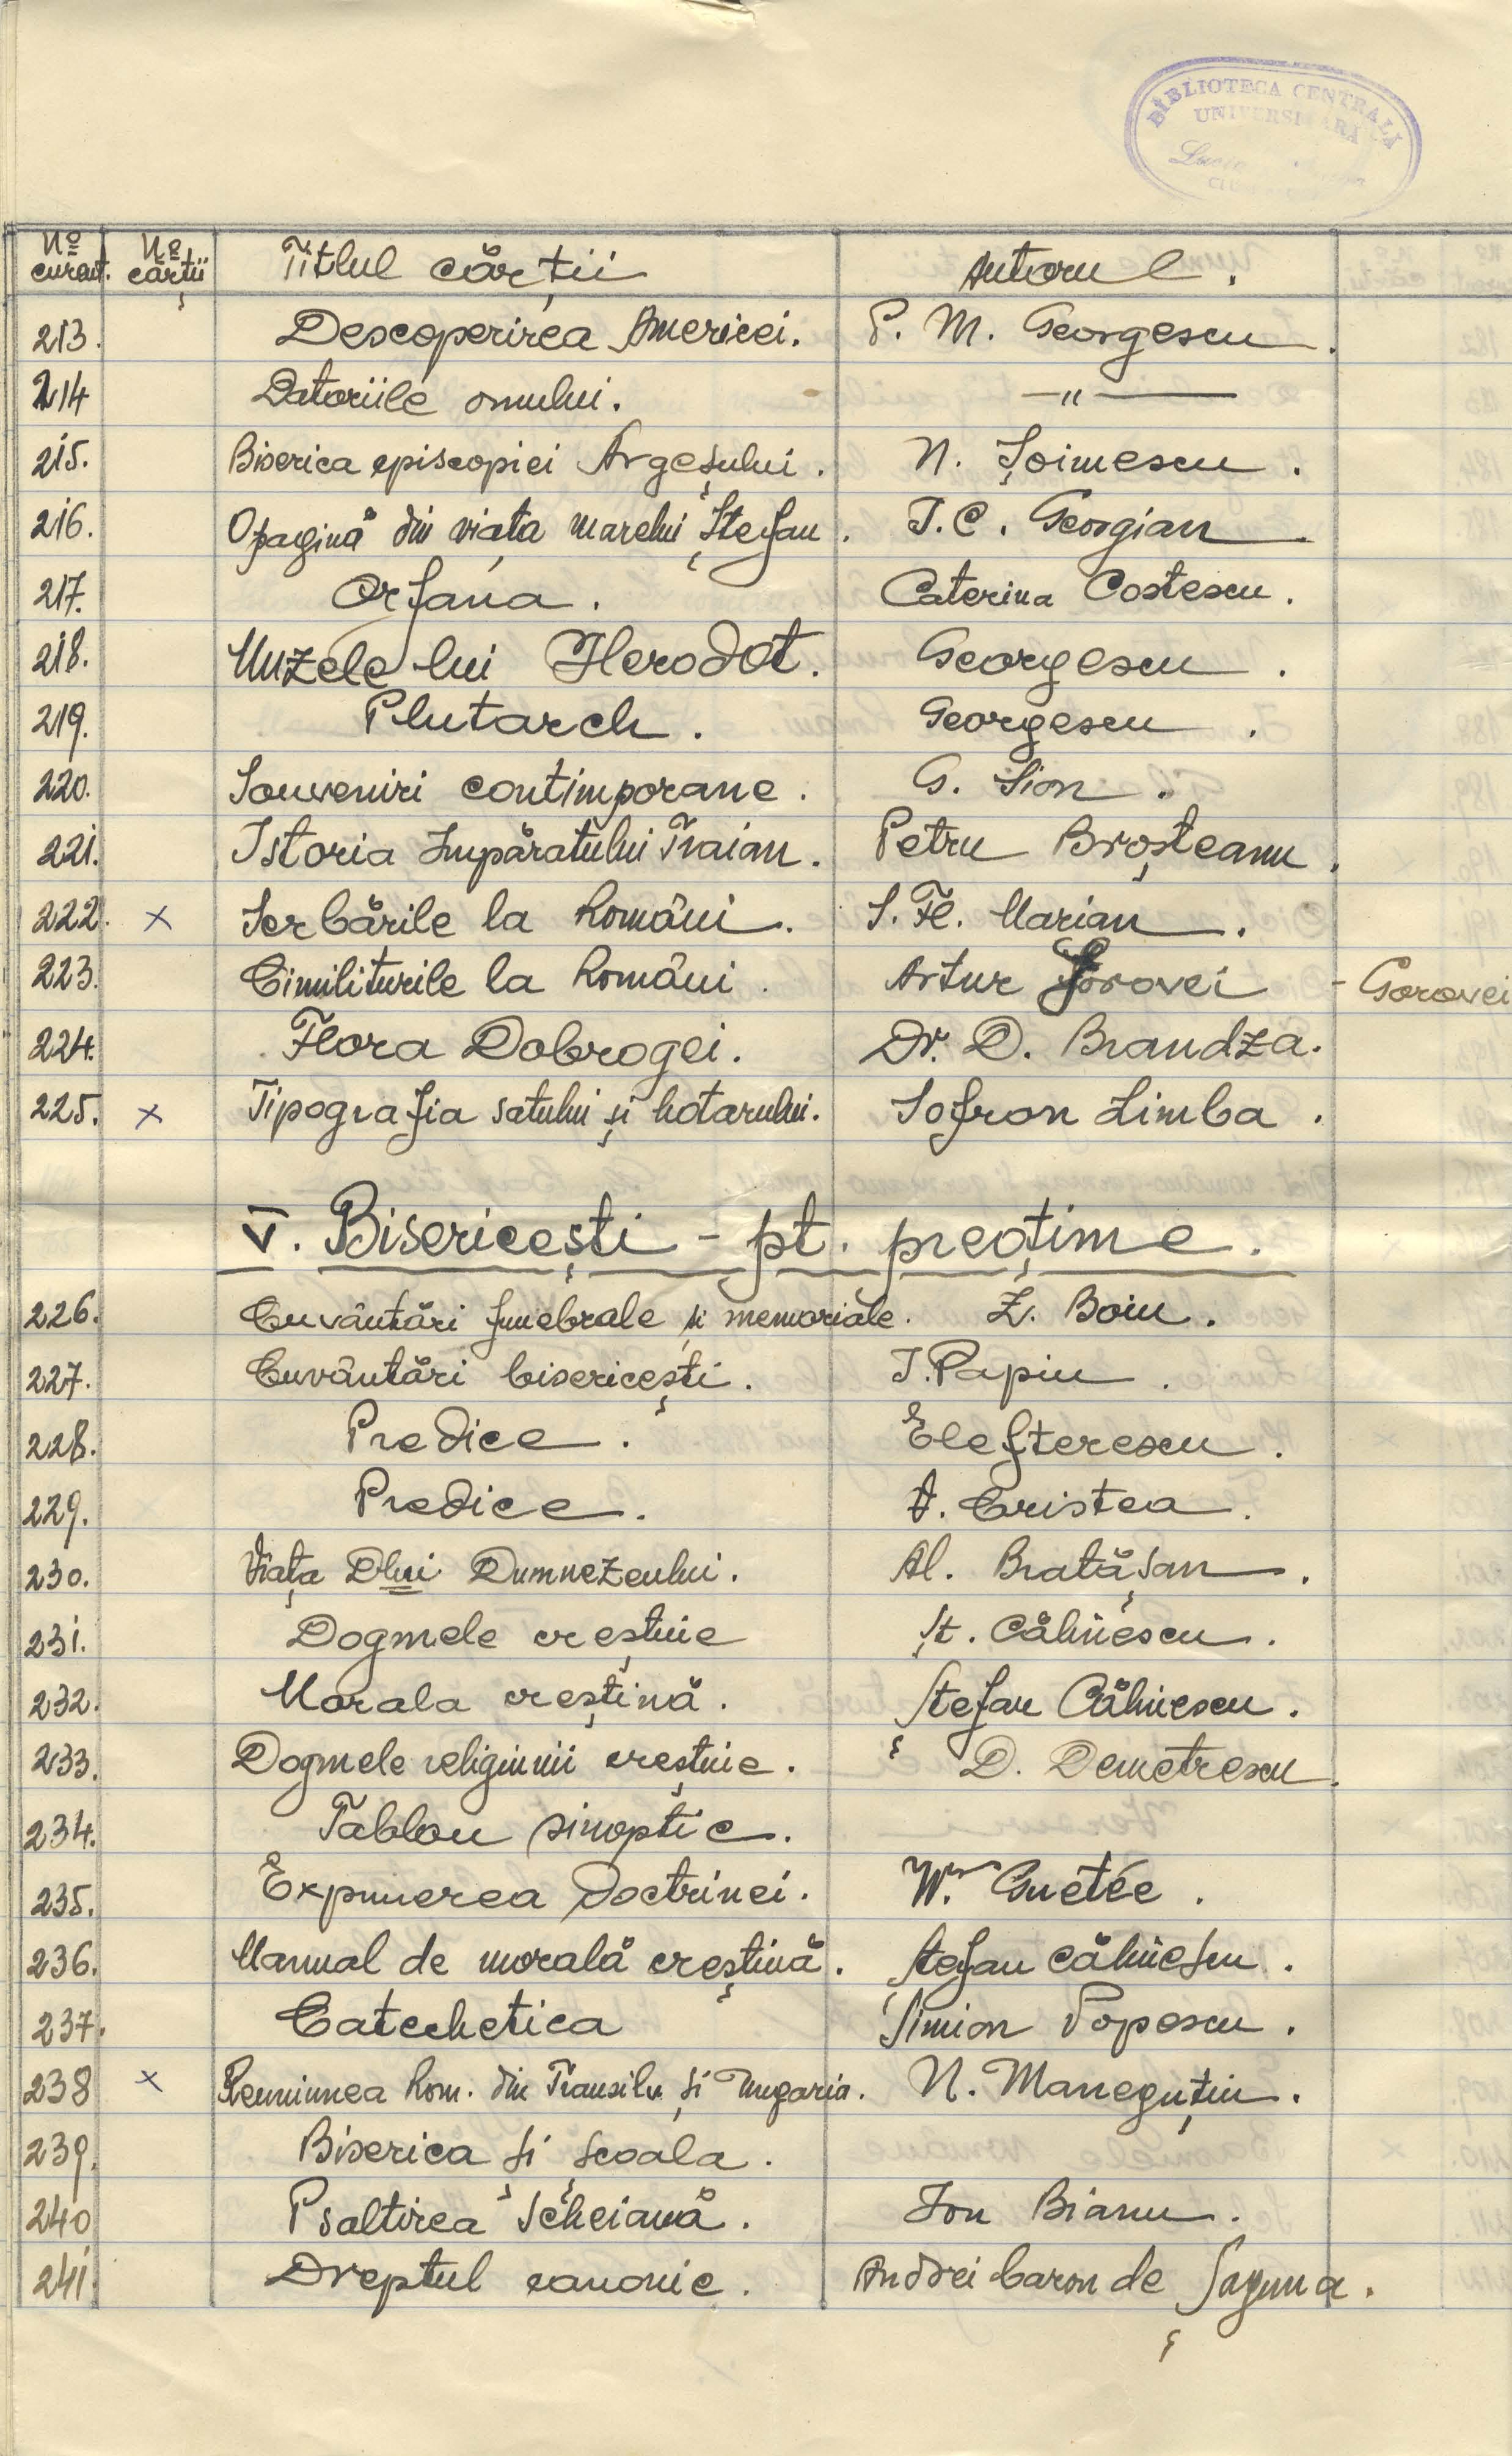 BIBLIOTECA CENTRALĂ
UNIVERSITARĂ
Lucian
No curent. No cărții Titlul cărții Autorul.
213. Descoperirea Americei. P. M. Georgescu.
214 Datoriile omului. —"—
215. Biserica episcopiei Argeșului. N. Șoimescu.
216. O pagină din viața marelui Ștefan. I. C. Georgian.
217. Orfana. Caterina Costescu.
218. Muzele lui Herodot. Georgescu.
219. Plutarch. Georgescu.
220. Souveniri contimporane. G. Sion.
221. Istoria Împăratului Traian. Petru Broșteanu.
222. x Serbările la Români. S. Fl. Marian.
223. Cimiliturile la Români. Artur Gorovei - Gorovei
224. Flora Dobrogei. Dr. D. Brandza.
225. x Tipografia satului și hotarului. Sofron Limba.
V. Bisericești - pt. preoțime.
226. Cuvântări funebrale și memoriale. Z. Boiu.
227. Cuvântări bisericești. I. Papiu.
228. Predice. Elefterescu.
229. Predice. V. Cristea.
230. Viața Dlui Dumnezeului. Al. Bratășan.
231. Dogmele creștine Șt. Călinescu.
232. Morala creștină. Ștefan Călinescu.
233. Dogmele religiunii creștine. D. Demetrescu.
234. Tablou sinoptic.
235. Expunerea doctrinei. W. Guetée.
236. Manual de morală creștină. Ștefan Călinescu.
237. Catechetica Simion Popescu.
238 x Reuniunea Rom. din Transilv. și Ungaria. N. Maneguțiu.
239. Biserica și școala.
240 Psaltirea Scheiană. Ion Bianu.
241. Dreptul canonic. Andrei baron de Șaguna.